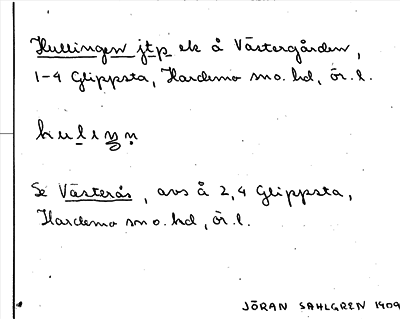 Hullingen jtp ek å Västergården,
1-4 Glippsta, Hardemo sn o. hd, ör. l.
Se Västerås, avs å 2,4 Glippsta,
Hardemo sn o. hd, ör. l.
JÖRAN SAHLGREN 1909